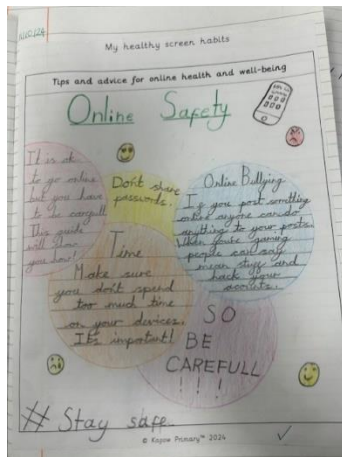 My healthy screen habits
Tips and advice for online health and well-being
Online Safety
It is ok
to go online
but you have
to be carefull
This guide
will show
you how!
Don't share
passwords.
Online Bullying
If you post something
online anyone can do
anything to your posts.
When you're gaming
people can say
mean stuff and
hack your
accounts.
Time
Make sure
you don't spend
too much time
on your devices.
It's important!
SO
BE
CAREFULL
! ! !
# Stay safe
© Kapow Primary™ 2024